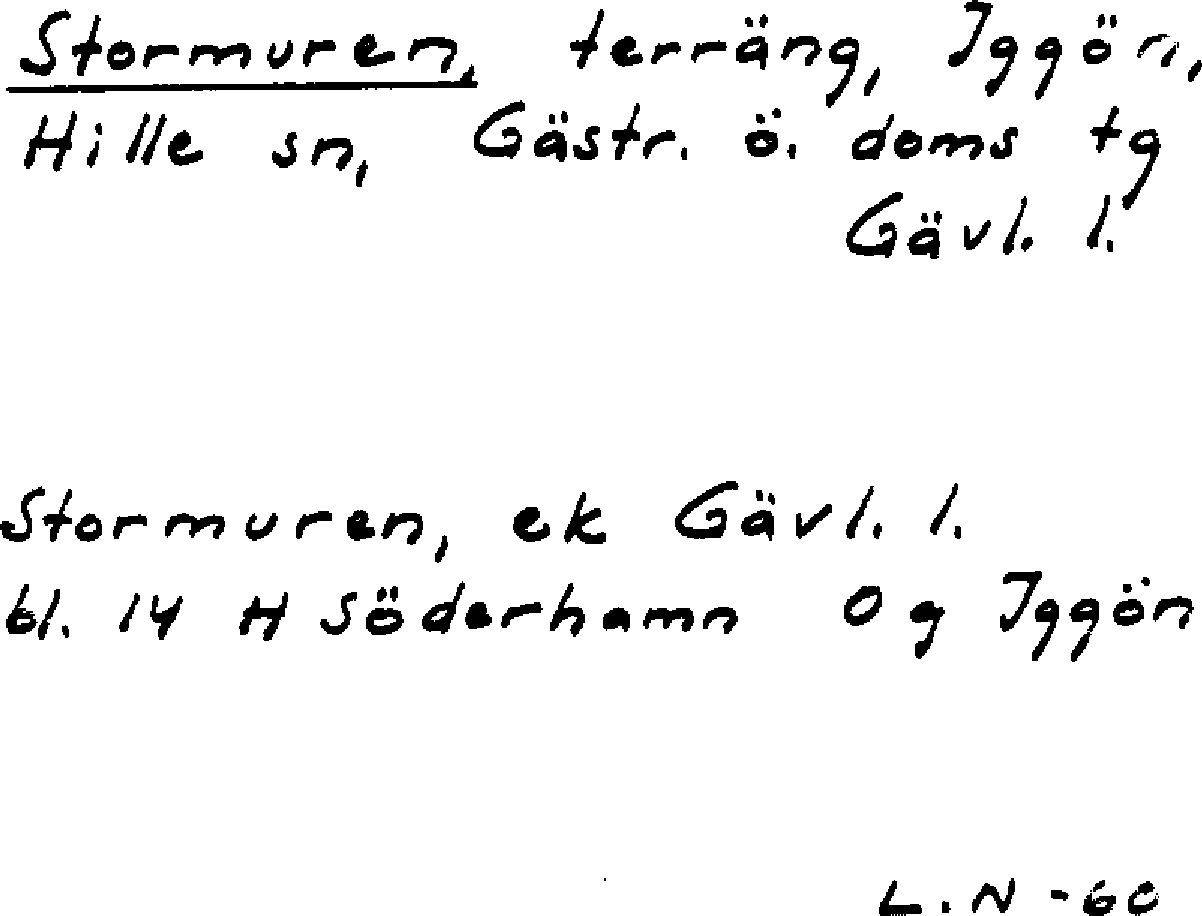 Stormuren, terräng, Iggön,
Hille sn, Gästr. ö. doms tg
Gävl. l.
Stormuren, ek Gävl. l.
bl. 14 H Söderhamn 0 g Iggön
L. N -60